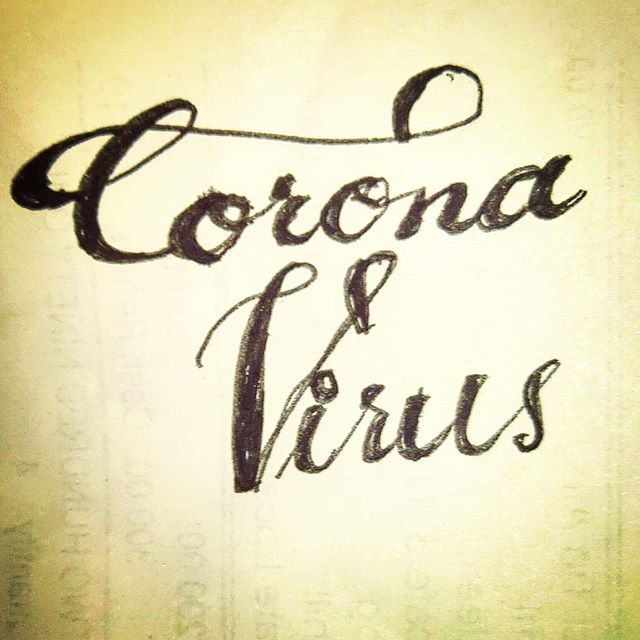 Corona
Virus